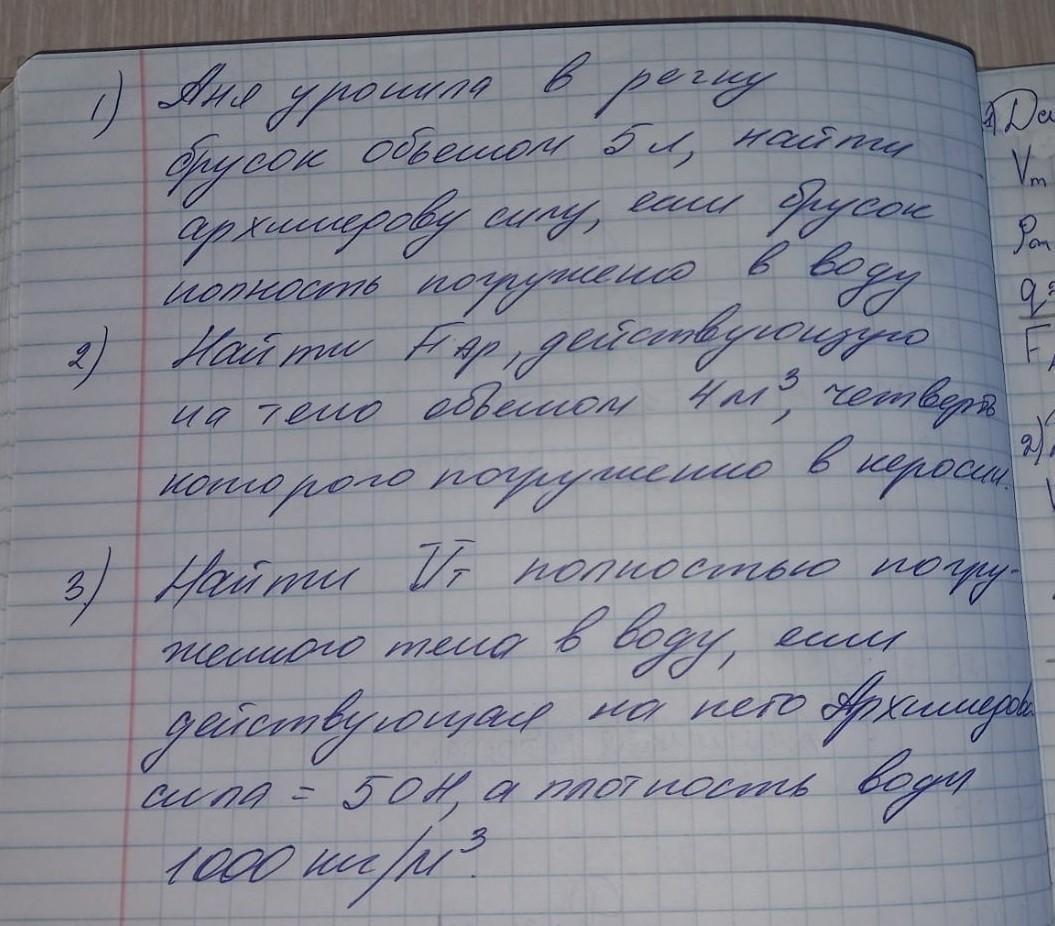 1) Аня уронила в речку
брусок объемом 5 л, найти
архимедову силу, если брусок
полность погружено в воду
2) Найти FАр, действующую
на тело объемом 4 м³, четверть
которого погруженно в керосин.
3) Найти Vт полностью погру-
женного тела в воду, если
действующая на него Архимедова
сила = 50Н, а плотность воды
1000 кг/м³.
1) Да
Vт
q
F
2)